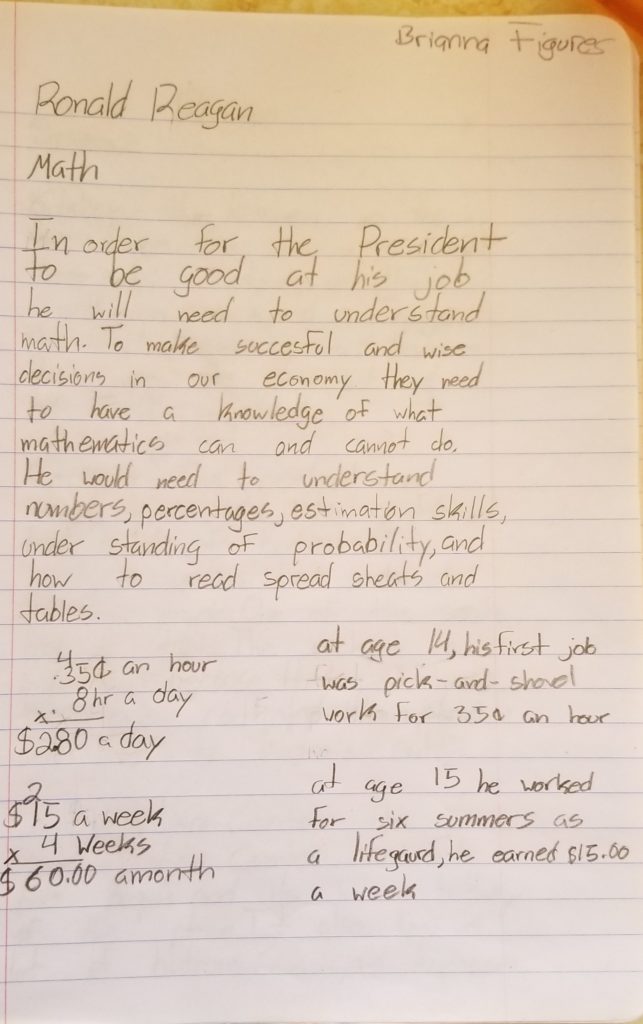 Brianna Figures
Ronald Reagan
Math
In order for the President
to be good at his job
he will need to understand
math. To make succesful and wise
decisions in our economy they need
to have a knowledge of what
mathematics can and cannot do.
He would need to understand
numbers, percentages, estimation skills,
under standing of probability, and
how to read spread sheats and
tables.
4
.35¢ an hour
x. 8hr a day
$2.80 a day
at age 14, his first job
was pick-and-shovel
work for 35¢ an hour
2
$15 a week
x 4 Weeks
$60.00 amonth
at age 15 he worked
for six summers as
a lifegaurd, he earned $15.00
a week